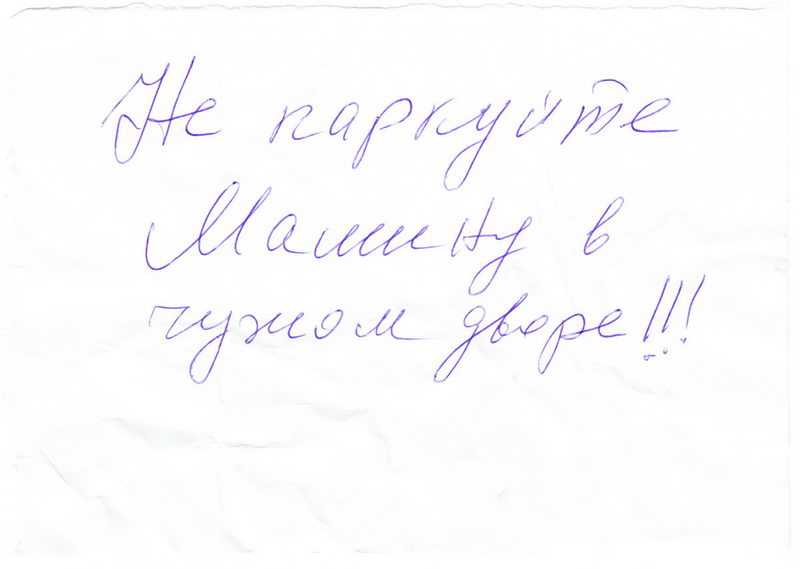 Не паркуйте
Машину в
чужом дворе!!!